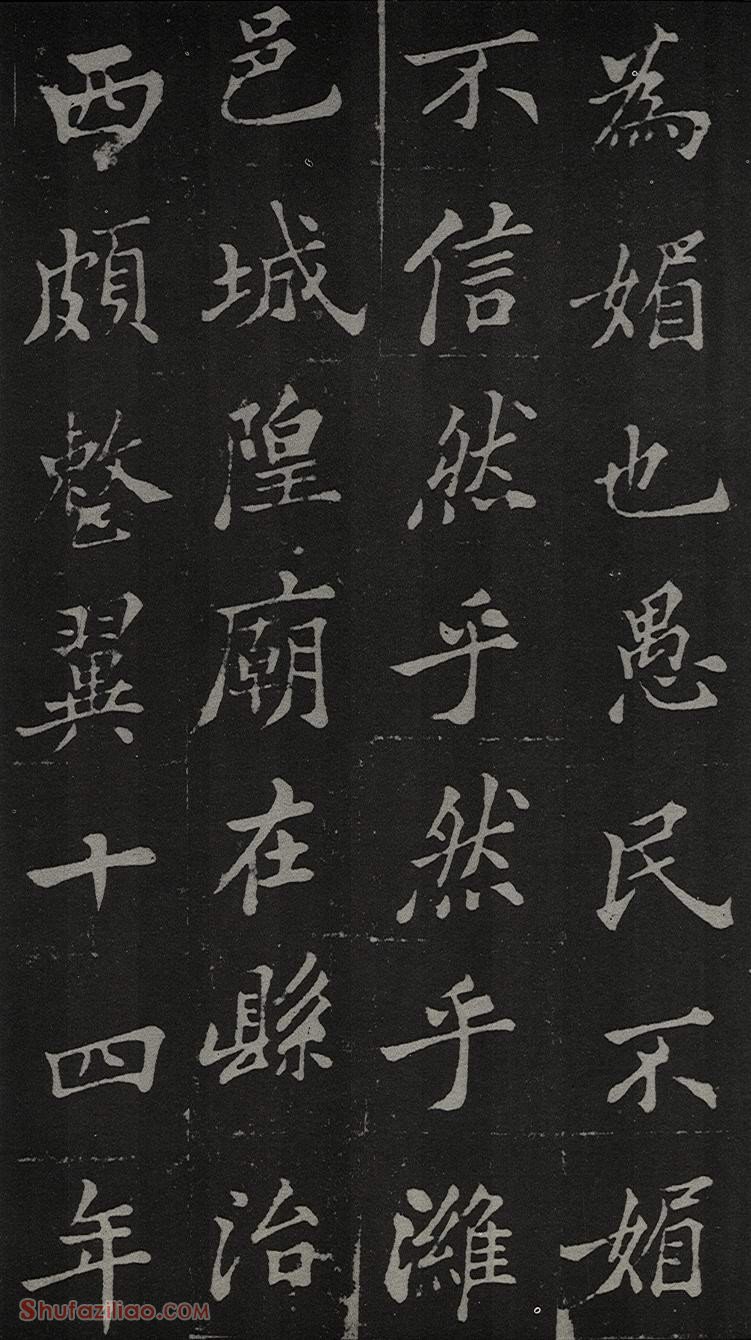 為媚也愚民不媚
不信然乎然乎濰
邑城隍廟在縣治
西頗整翼十四年
Shufaziliao.COM